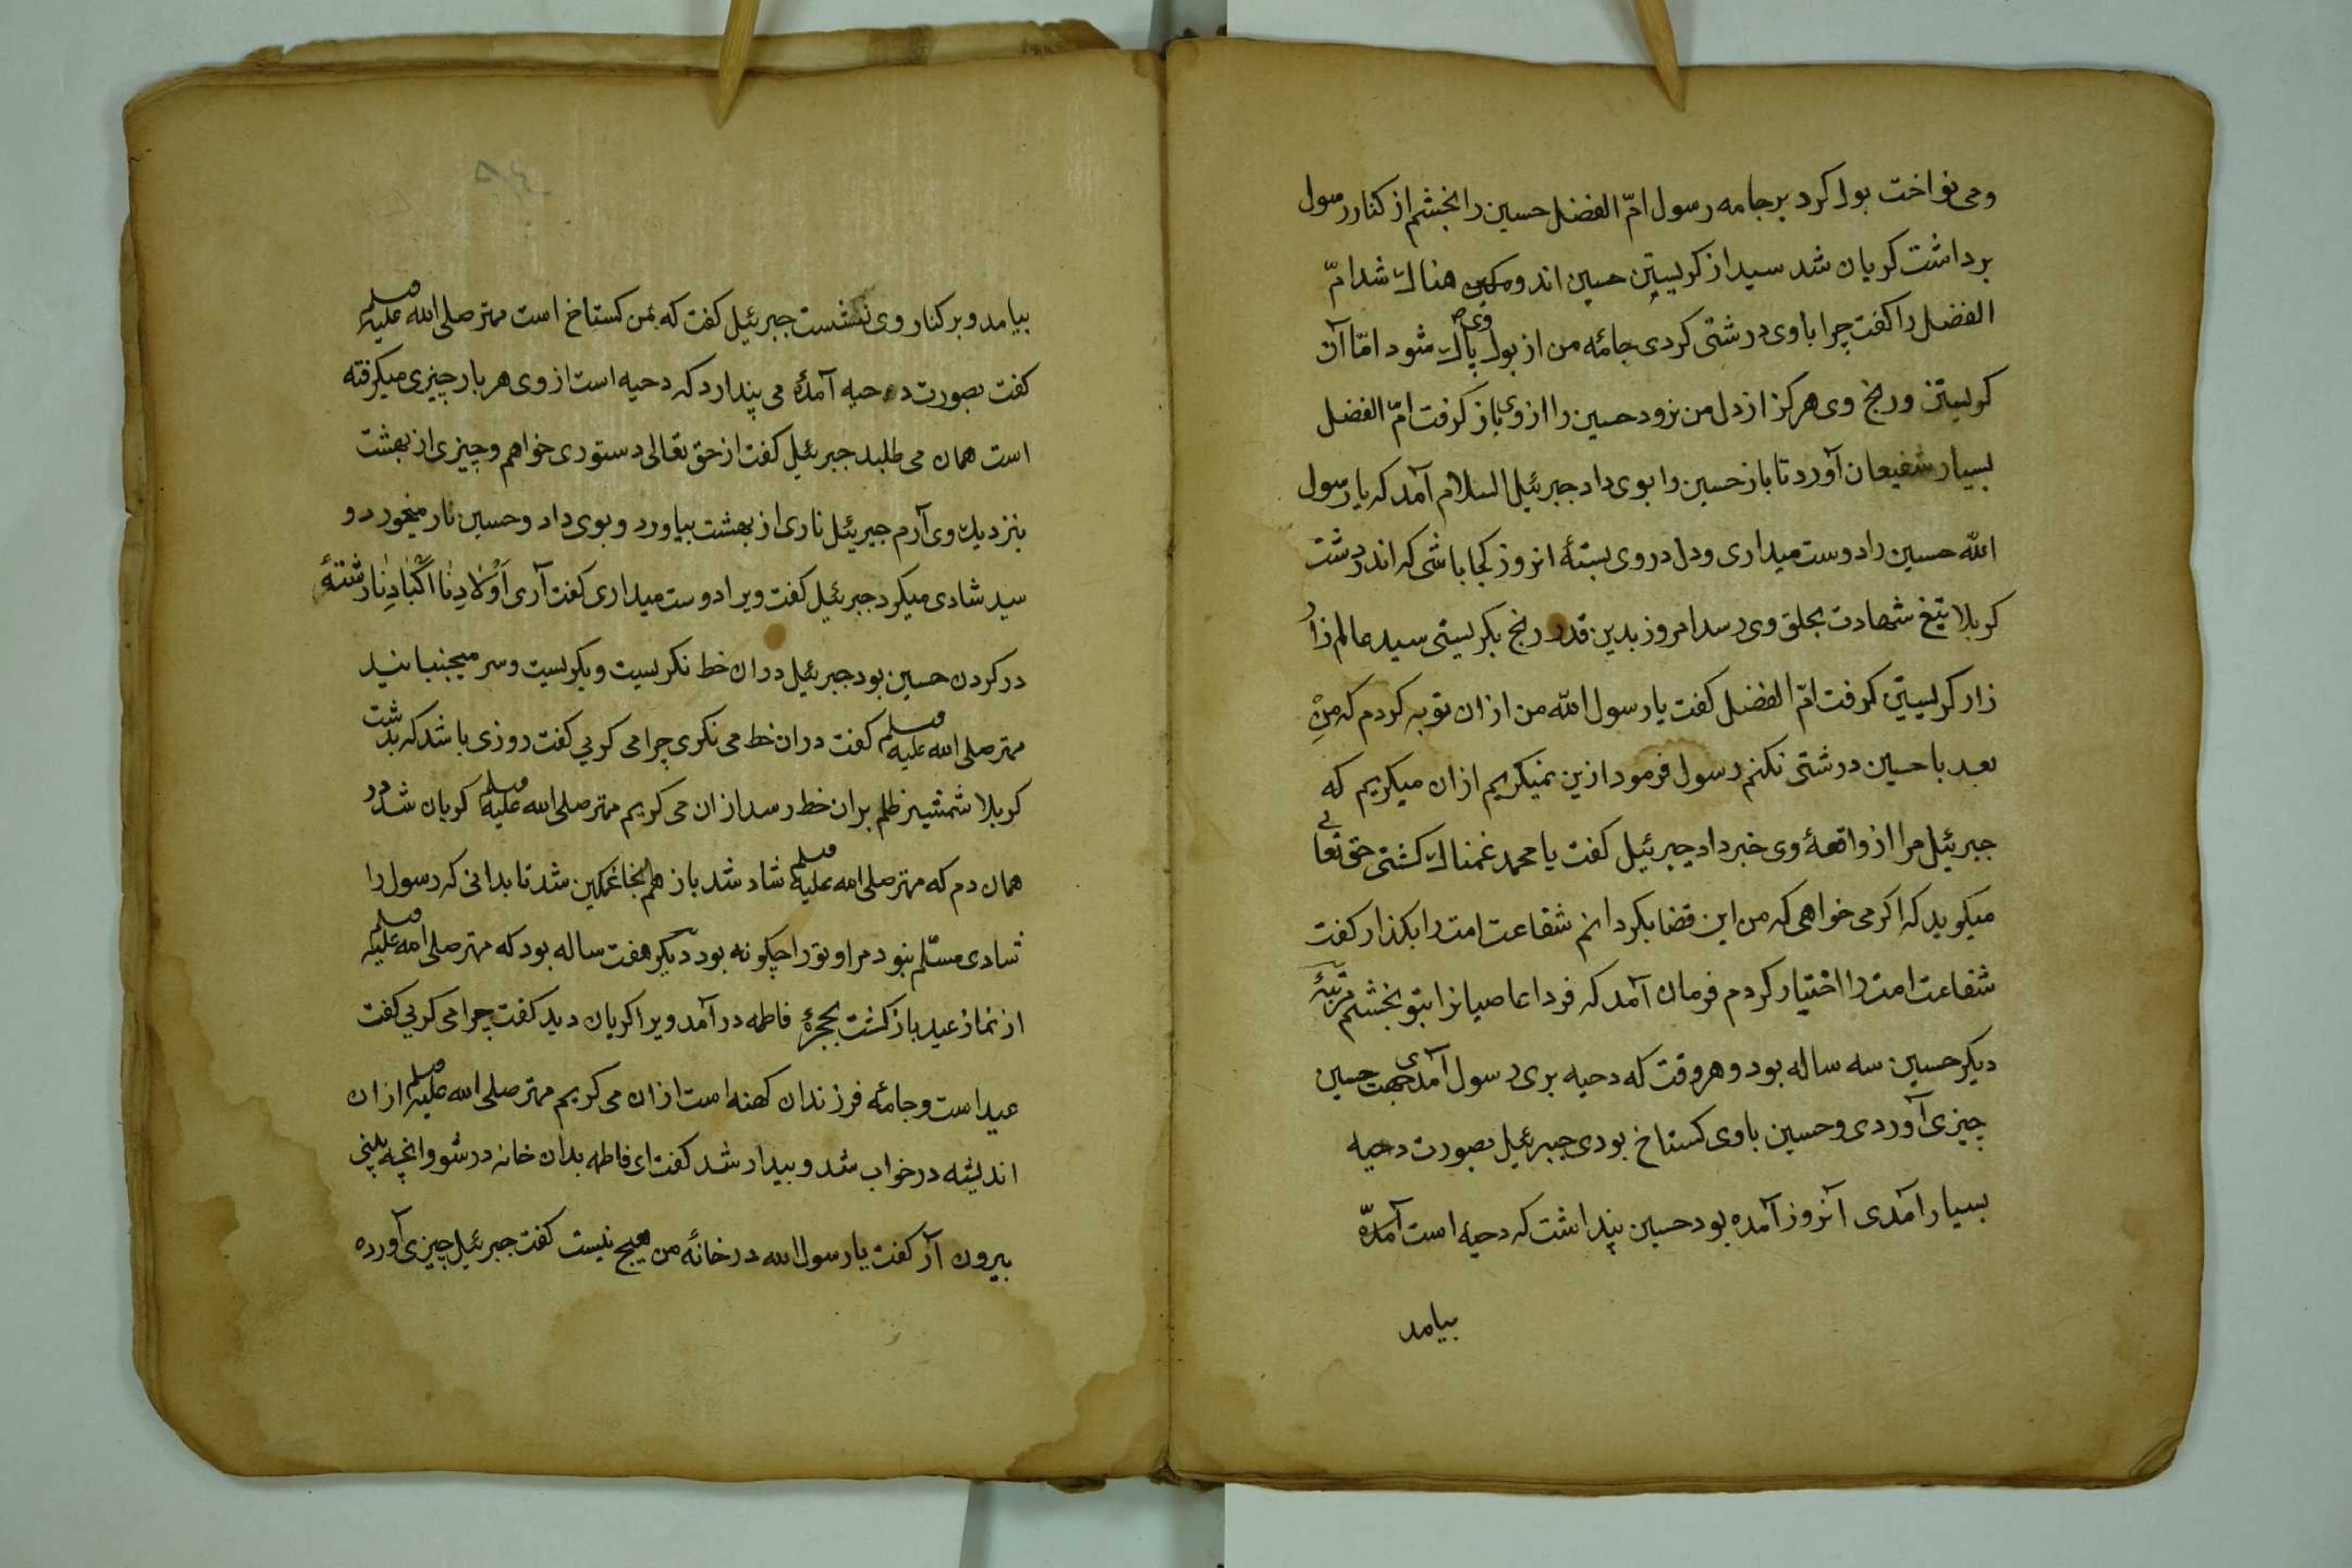 ومی نواخت بول کرد بر جامه رسول امّ الفضل حسین را بخشم از کنار رسول
برداشت کریان شد سید از کریستن حسین اندوهکین هناک شد امّ
الفضل را کفت چرا با وی درشتی کردی جامۀ من از بول وی پاک شود امّا آن
کریستن و رنج وی هرکز از دل من نرود حسین را از وی باز کرفت امّ الفضل
بسیار شفیعان آورد تا باز حسین را بوی داد جبرئیل السلام آمد که یا رسول
الله حسین را دوست میداری و دل در وی بستۀ انروز کجا باشی که اندر دشت
کربلا تیغ شهادت بحلق وی رسد امروز بدین قدر رنج بکریستی سید عالم زار
زار کریستن کرفت امّ الفضل کفت یا رسول الله من از ان توبه کردم که مِن
بعد با حسین درشتی نکنم رسول فرمود ازین نمیکریم از ان میکریم که
جبرئیل مرا از واقعۀ وی خبر داد جبرئیل کفت یا محمد غمناک کشتی حق تعالی
میکوید که اکر می خواهی که من این قضا بکردانم شفاعت امت را بکذار کفت
شفاعت امت را اختیار کردم فرمان آمد که فردا عاصیانرا بتو بخشم مرتبۀ
دیکر حسین سه ساله بود و هر وقت که دحیه بری رسول آمدی جهت حسین
چیزی آوردی و حسین با وی کستاخ بودی جبرئیل بصورت دحیه
بسیار آمدی آنروز آمده بود حسین پنداشت که دحیه است آمدّه
بیامد
بیامد و بر کنار وی نشست جبرئیل کفت که بمن کستاخ است مهتر صلی الله علیه وسلم
کفت بصورت دحیه آمدۀ می پندارد که دحیه است از وی هر بار چیزی میکرفته
است همان می طلبد جبرئیل کفت از حق تعالی دستوری خواهم و چیزی از بهشت
بنزدیک وی آرم جبرئیل ناری از بهشت بیاورد و بوی داد و حسین نار میخورد و
سید شادی میکرد جبرئیل کفت ویرا دوست میداری کفت آری اَوْلادِنَا اَکْبَادِنَا رشتۀ
در کردن حسین بود جبرئیل دران خط نکریست و بکریست و سر میجنبانید
مهتر صلی الله علیه وسلم کفت دران خط می نکری چرا می کریی کفت روزی باشد که بدشت
کربلا شمشیر ظلم بران خط رسد از ان می کریم مهتر صلی الله علیه وسلم کریان شد در
همان دم که مهتر صلی الله علیه وسلم شاد شد باز همانجا غمکین شد تا بدانی که رسول را
شادی مسلّم نبود مرا و ترا چکونه بود دیکر هفت ساله بود که مهتر صلی الله علیه وسلم
از نماز عید باز کشت بحجرۀ فاطمه درآمد ویرا کریان دید کفت چرا می کریی کفت
عید است و جامۀ فرزندان کهنه است از ان می کریم مهتر صلی الله علیه وسلم از ان
اندیشه در خواب شد و بیدار شد کفت ای فاطمه بدان خانه در شو و انچه بینی
بیرون آر کفت یا رسول الله در خانۀ من هیچ نیست کفت جبرئیل چیزی آورده